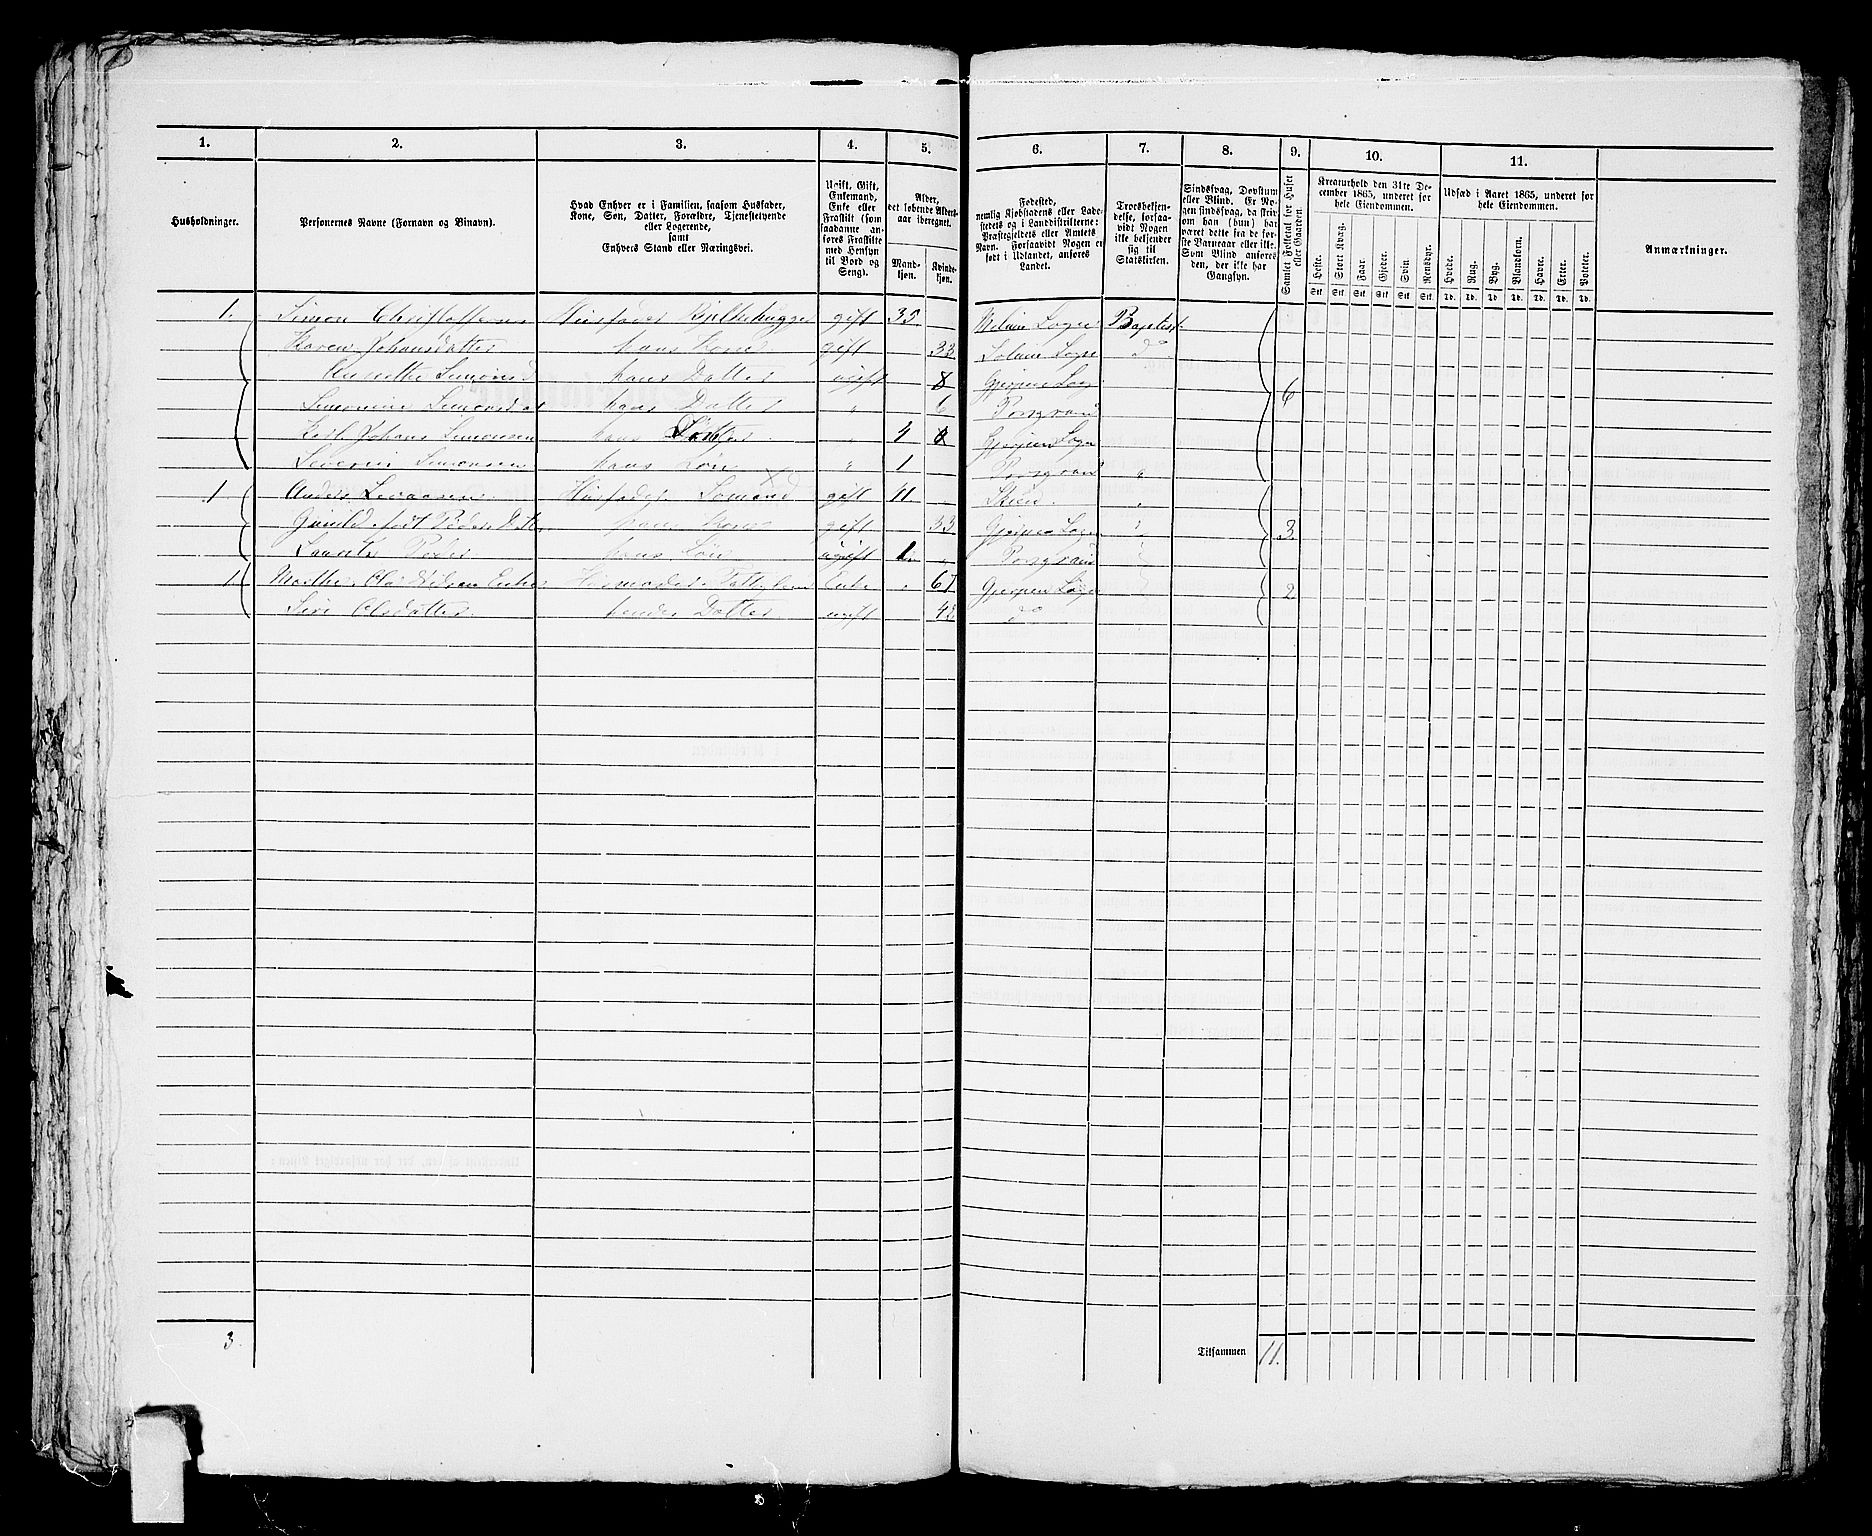 1. 2. 3. 4. 5. 6. 7. 8. 9. 10. 11.
Husholdninger.
Personernes Navne (Fornavn og Binavn).
Hvad Enhver er i Familien, saasom Husfader,
Kone, Søn, Datter, Forældre, Tjenestetyende
eller Logerende,
samt
Enhvers Stand eller Næringsvei.
Ugift, Gift,
Enkemand,
Enke eller
Fraskilt (som
saadanne an-
føres Fraskilte
med Hensyn
til Bord og
Seng).
Alder,
det løbende Alders-
aar iberegnet.
Mand-
kjøn.
Kvinde-
kjøn.
Fødested,
nemlig Kjøbstadens eller Lade-
stedets og i Landdistrikterne:
Præstegjeldets eller Amtets
Navn. Forsaavidt Nogen er
født i Udlandet, anføres
Landet.
Troesbekjen-
delse, forsaa-
vidt Nogen
ikke bekjender
sig til
Statskirken.
Sindssvag, Døvstum
eller Blind. Er No-
gen sindssvag, da skriv
om han (hun) har
været dette fra de før-
ste Barneaar eller ikke.
Som Blind anføres
den, der ikke har
Gangsyn.
Samlet Folketal for Huset
eller Gaarden.
Kreaturhold den 31te De-
cember 1865, underet for
hele Eiendommen.
Heste. Stort Kvæg. Faar. Gjeder. Svin. Rensdyr.
Stk. Stk. Stk. Stk. Stk. Stk.
Udsæd i Aaret 1865, underet for
hele Eiendommen.
Hvede. Rug. Byg. Blandkorn. Havre. Erter. Poteter.
Td. Td. Td. Td. Td. Td. Td.
Anmærkninger.
1. Simon Christoffersen Husfader gift 35 Sogn Baptist
Karen Johansdatter hans Kone gift 33 Solum Sogn do
Simonsd hans Datter ugift 8 Gjerpen Sogn 6
Simonsdat hans Datter " 6 Porsgrund
Karl Johan Simonsen hans " 4 Gjerpen Sogn
Severin Simonsen hans Søn " 1 Porsgrund "
1 Anders Husfader Sømand gift 41 " Skien "
hans Kone gift 33 Gjerpen Sogn 3
hans Søn ugift 1 Porsgrund
1 Enke 67 Gjerpen Sogn 2
Siri Olsdatter hendes Datter ugift 42 do
3.
Tilsammen 11.